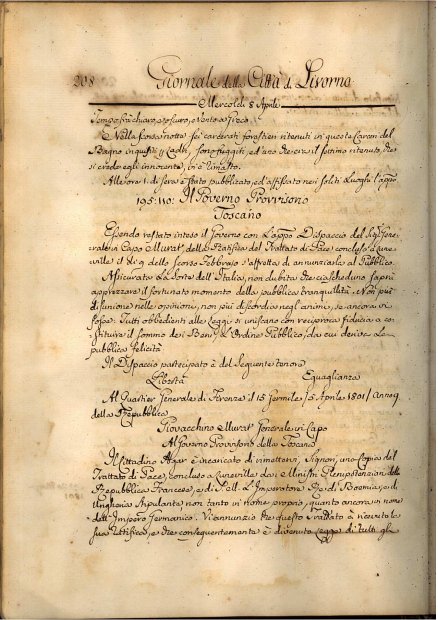 208 Giornale della Città di Livorno
Mercoldì 8 Aprile
Tempo frà chiaro, e oscuro, e vento a Greco
Nella scorsa notte sei carcerati forastieri ritenuti in queste Carceri del
Bagno inquisiti p Ladri, sono fuggiti, ed uno che era il settimo ritenuto, che
si crede egli innocente, vi è rimasto.
Alle ore 1. di sera è stato pubblicato, ed affissato nei soliti Luoghi l'appo
195. 110: Il Governo Provvisorio
Toscano
Essendo restato inteso il Governo con l'apposo Dispaccio del Sigr Gene-
rale in Capo Murat della Ratifica del Trattato di Pace concluso a Lune-
ville il dì 9 dello scorso Febbraio s'affretta di annunziarla al Pubblico.
Assicurata la sorte dell'Italia, non dubita che ciascheduno saprà
apprezzare il fortunato momento della pubblica tranquillità. Non più
disunione nelle opinioni, non più discordia negl'animi, se ancora vi
fosse. Tutti obbedienti alle Leggi si uniscano con reciproca fiducia a co-
stituire il sommo dei Beni, L'Ordine Pubblico, da cui deriva La
pubblica felicità
Il Dispaccio partecipato è del Seguente tenore
Libertà Eguaglianza
Al Quartier Generale di Firenze il 15 Germile / 5 Aprile 1801 / Anno 9
della Repubblica
Giovacchino Murat Generale in Capo
Al Governo Provvisorio della Toscana
Il Cittadino Algar è incaricato di rimettervi, Signori, una Copia del
Trattato di Pace, concluso a Luneville da i Ministri Plenipotenziari della
Repubblica Francese, e di S. M. L'Imperatore Rè di Boemia, e di
Ungheria stipulante non tanto in nome proprio, quanto ancora in nome
dell'Impero Germanico. Vi annunzio che questo Trattato è ricevuto la
sua ratifica, e che conseguentemente è divenuto Legge di tutti gli